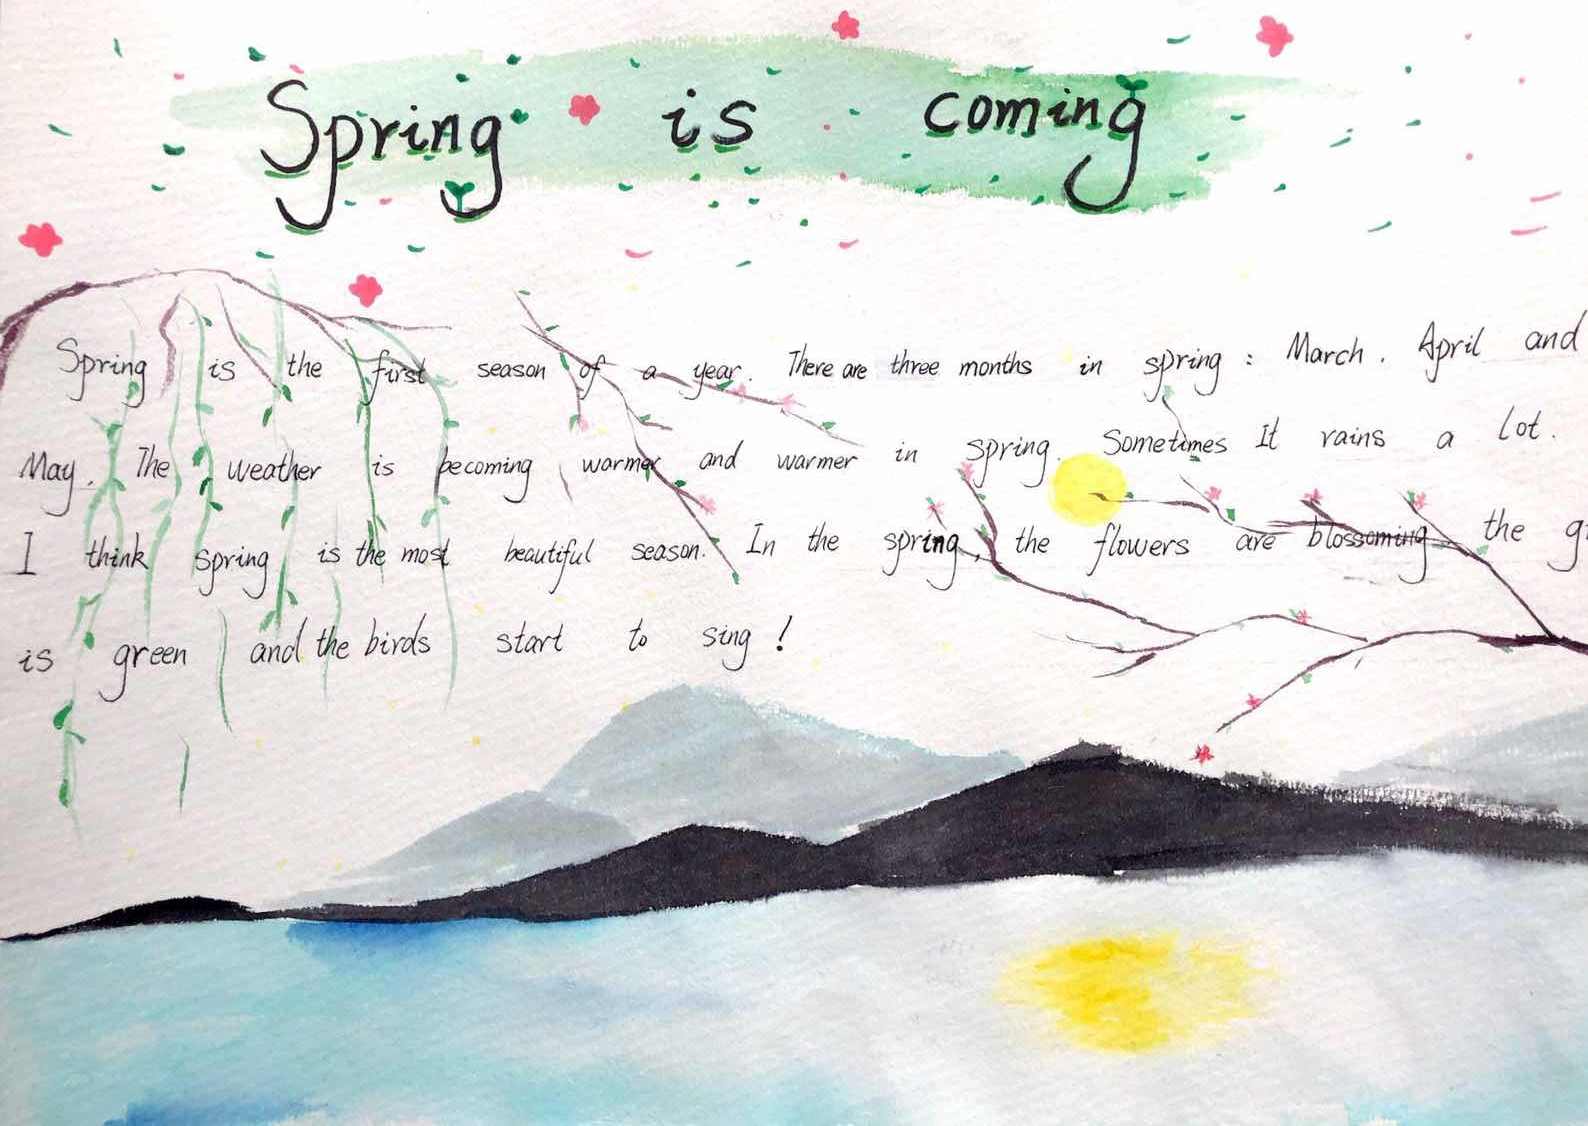 Spring is coming
Spring is the first season of a year. There are three months in spring : March . April and
May. The weather is becoming warmer and warmer in spring. Sometimes It rains a lot.
I think spring is the most beautiful season. In the spring, the flowers are blossoming the
is green and the birds start to sing !